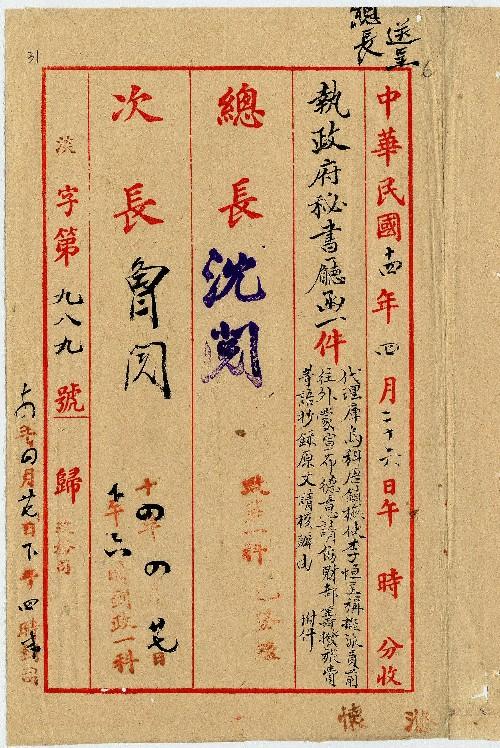 送呈
總長
中華民國十四年四月二十六日午 時 分收
執政府秘書廳函一件
代理庫烏科唐鎮撫使李恒呈稱擬派員前
往外蒙宣布德意請飭財部籌撥旅費
等語抄錄原文請核辦由 附件
總長
沈閱
次長
曾閱
十四年四月廿七日
字第九八九號
歸
十四年四月廿七日下午四時到司
31
6